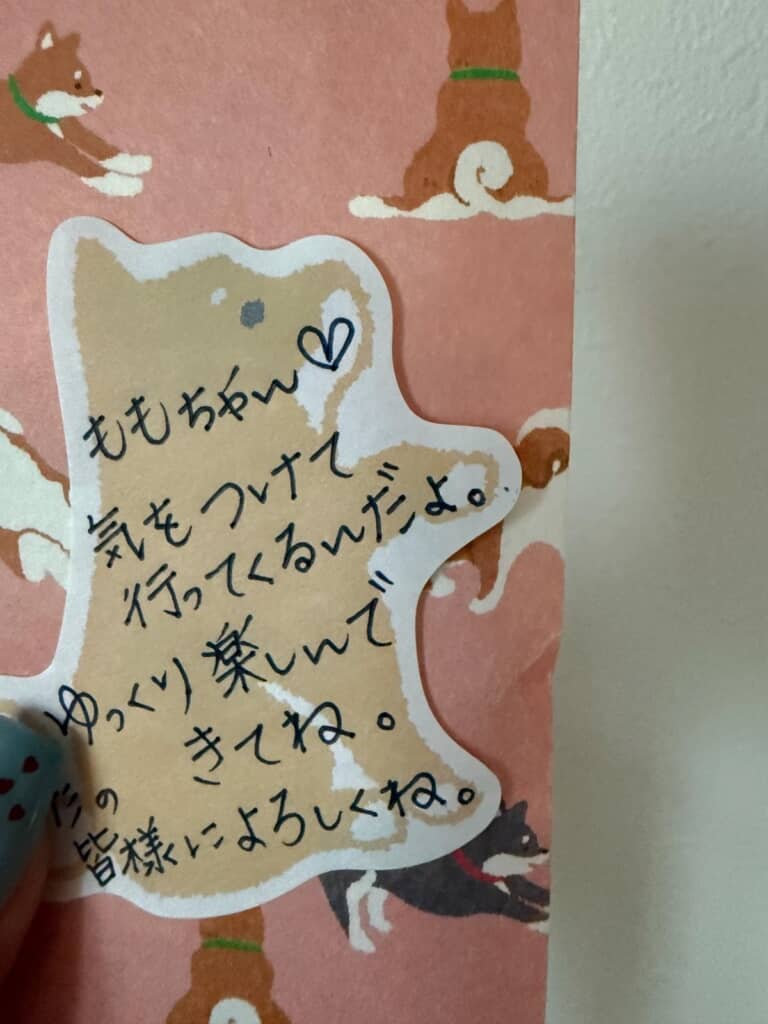 ももちゃん♡
気をつけて
行ってくるんだよ。
ゆっくり楽しんで
きてね。
の
皆様によろしくね。